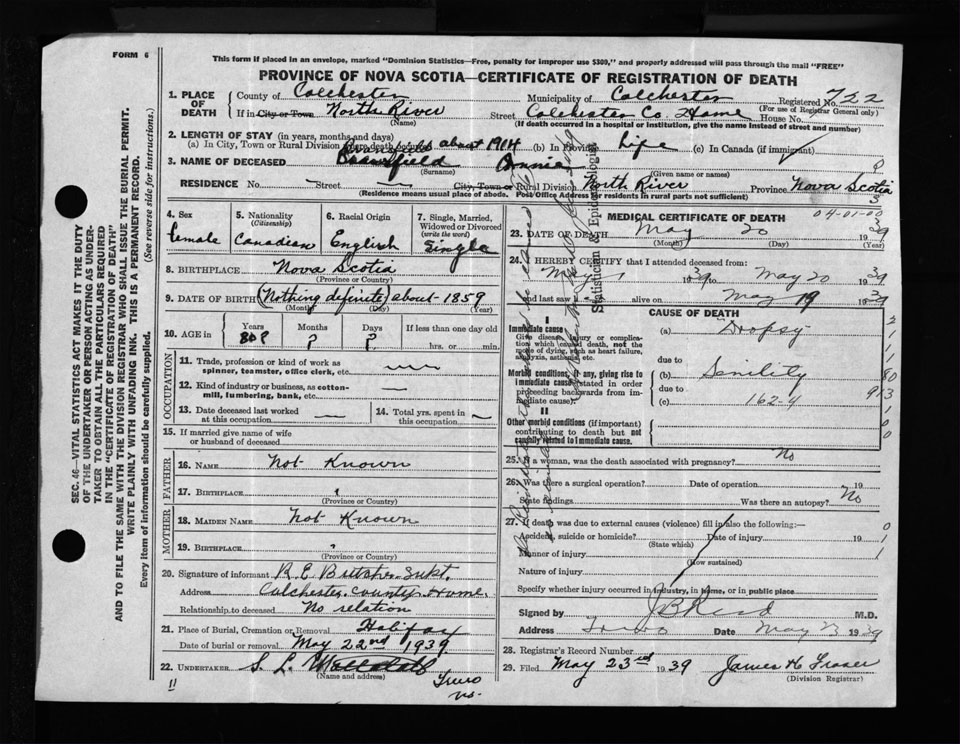 FORM 6
This form if placed in an envelope, marked "Dominion Statistics—Free, penalty for improper use $300," and properly addressed will pass through the mail "FREE"
PROVINCE OF NOVA SCOTIA—CERTIFICATE OF REGISTRATION OF DEATH
1. PLACE OF DEATH
County of Colchester Municipality of Colchester Registered No. 722
(For use of Registrar General only)
If in City or Town North River Street Colchester Co Home House No.
(Name) (If death occurred in a hospital or institution, give the name instead of street and number)
2. LENGTH OF STAY (in years, months and days)
(a) In City, Town or Rural Division where death occurred about 1914 (b) In Province Life (c) In Canada (if immigrant)
3. NAME OF DECEASED Annie
(Surname) (Given name or names)
RESIDENCE No. Street City, Town or Rural Division North River Province Nova Scotia
(Residence means usual place of abode. Post Office Address for residents in rural parts not sufficient)
4. Sex female
5. Nationality (Citizenship) Canadian
6. Racial Origin English
7. Single, Married, Widowed or Divorced (write the word) Single
8. BIRTHPLACE Nova Scotia
(Province or Country)
9. DATE OF BIRTH (Nothing definite) about 1859
(Month) (Day) (Year)
10. AGE in Years 80? Months ? Days ? If less than one day old
hrs. or min.
OCCUPATION
11. Trade, profession or kind of work as spinner, teamster, office clerk, etc.
12. Kind of industry or business, as cotton-mill, lumbering, bank, etc.
13. Date deceased last worked at this occupation
14. Total yrs. spent in this occupation
15. If married give name of wife or husband of deceased
FATHER
16. NAME Not Known
17. BIRTHPLACE
(Province or Country)
MOTHER
18. MAIDEN NAME Not Known
19. BIRTHPLACE
(Province or Country)
20. Signature of informant R. E. Butcher Supt.
Address Colchester County Home
Relationship to deceased No relation
21. Place of Burial, Cremation or Removal Halifax
Date of burial or removal May 22nd 1939
22. UNDERTAKER S. L.
(Name and address)
Truro
NS.
11
04-01-00
MEDICAL CERTIFICATE OF DEATH
23. DATE OF DEATH May 20 1939
(Month) (Day)
24. I HEREBY CERTIFY that I attended deceased from:
May 1 1939 to May 20 1939
and last saw h alive on May 19 1939
CAUSE OF DEATH
I
Immediate cause
Give disease, injury or complication which caused death, not the mode of dying, such as heart failure, asphyxia, asthenia, etc.
(a) Dropsy
due to
Morbid conditions, if any, giving rise to immediate cause (stated in order proceeding backwards from immediate cause).
(b) Senility
due to
(c) 162-4
II
Other morbid conditions (if important) contributing to death but not causally related to immediate cause.
Statistician & Epidemiologist
25. If a woman, was the death associated with pregnancy? No
26. Was there a surgical operation? Date of operation 19
State findings Was there an autopsy? No
27. If death was due to external causes (violence) fill in also the following:—
Accident, suicide or homicide? Date of injury 19
(State which)
Manner of injury
(How sustained)
Nature of injury
Specify whether injury occurred in industry, in home, or in public place
Signed by J B Reid M.D.
Address Truro Date May 23 1939
28. Registrar's Record Number
29. Filed May 23rd 1939 James H Fraser
(Division Registrar)
SEC. 46—VITAL STATISTICS ACT MAKES IT THE DUTY OF THE UNDERTAKER OR PERSON ACTING AS UNDERTAKER TO OBTAIN ALL THE PARTICULARS REQUIRED IN THE "CERTIFICATE OF REGISTRATION OF DEATH" AND TO FILE THE SAME WITH THE DIVISION REGISTRAR WHO SHALL ISSUE THE BURIAL PERMIT.
WRITE PLAINLY WITH UNFADING INK. THIS IS A PERMANENT RECORD.
Every item of information should be carefully supplied. (See reverse side for instructions.)